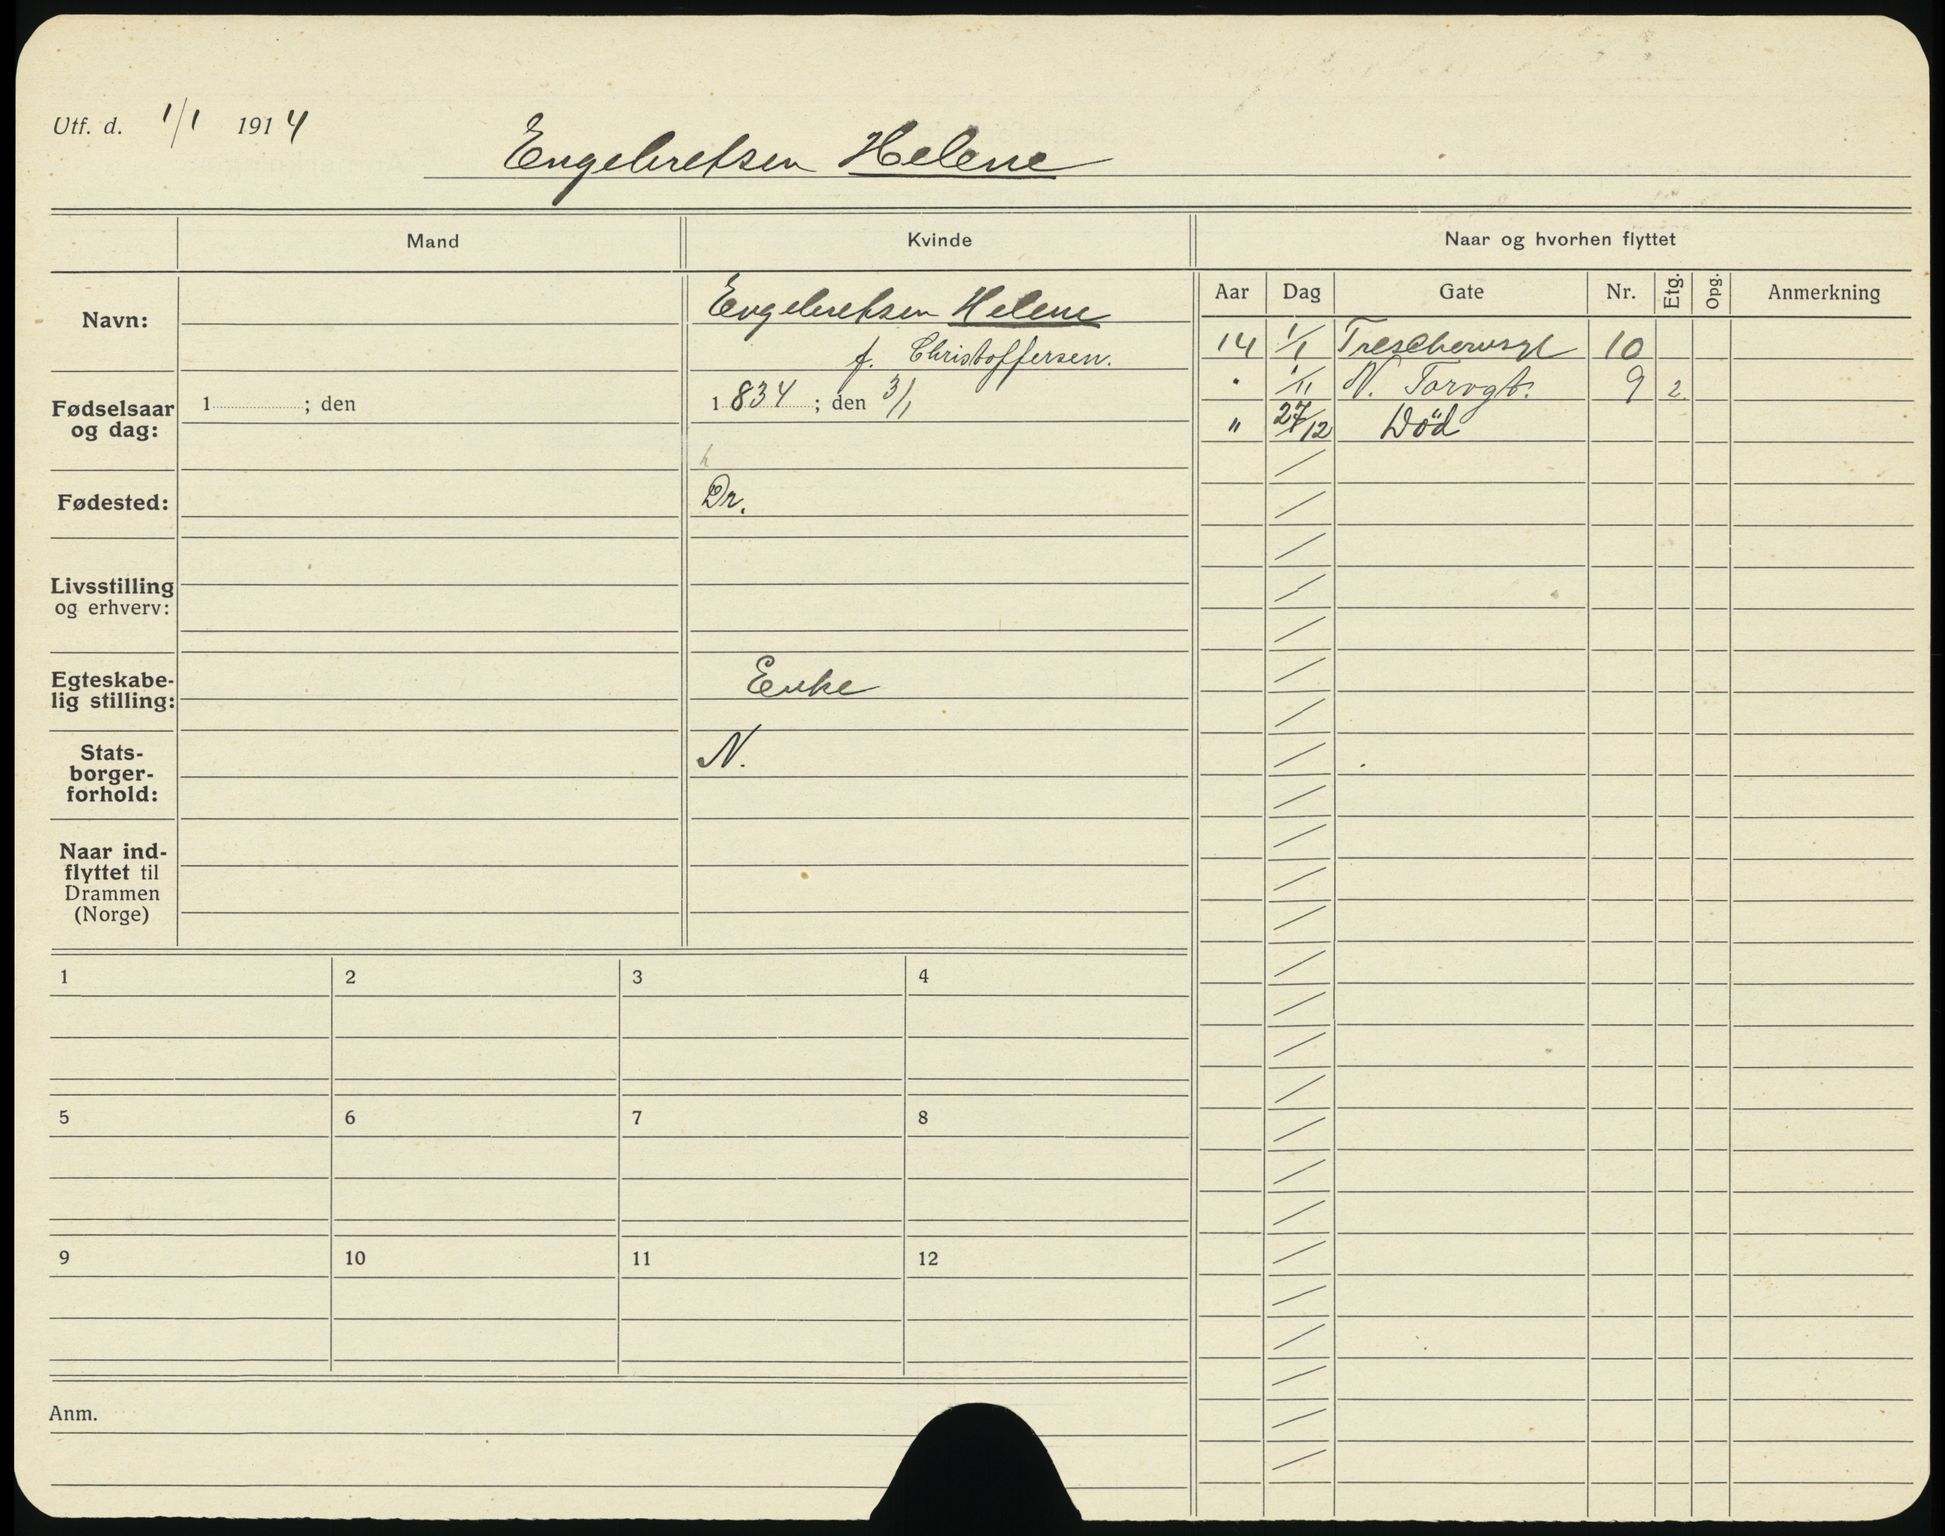 Utf. d. 1/1 1914
Engebretsen Helene
Mand
Kvinde
Naar og hvorhen flyttet
Navn:
Engebretsen Helene
f. Christoffersen.
Fødselsaar og dag:
1 ; den
1834 ; den 3/1
h
Fødested:
Dr.
Livsstilling og erhverv:
Egteskabe-
lig stilling:
Enke
Stats-
borger-
forhold:
N.
Naar ind-
flyttet til
Drammen
(Norge)
Aar Dag Gate Nr. Etg. Opg. Anmerkning
14 1/1 Treschowsgt 10
" 1/11 N. Torvgt. 9 2.
" 27/12 Död
1 2 3 4
5 6 7 8
9 10 11 12
Anm.